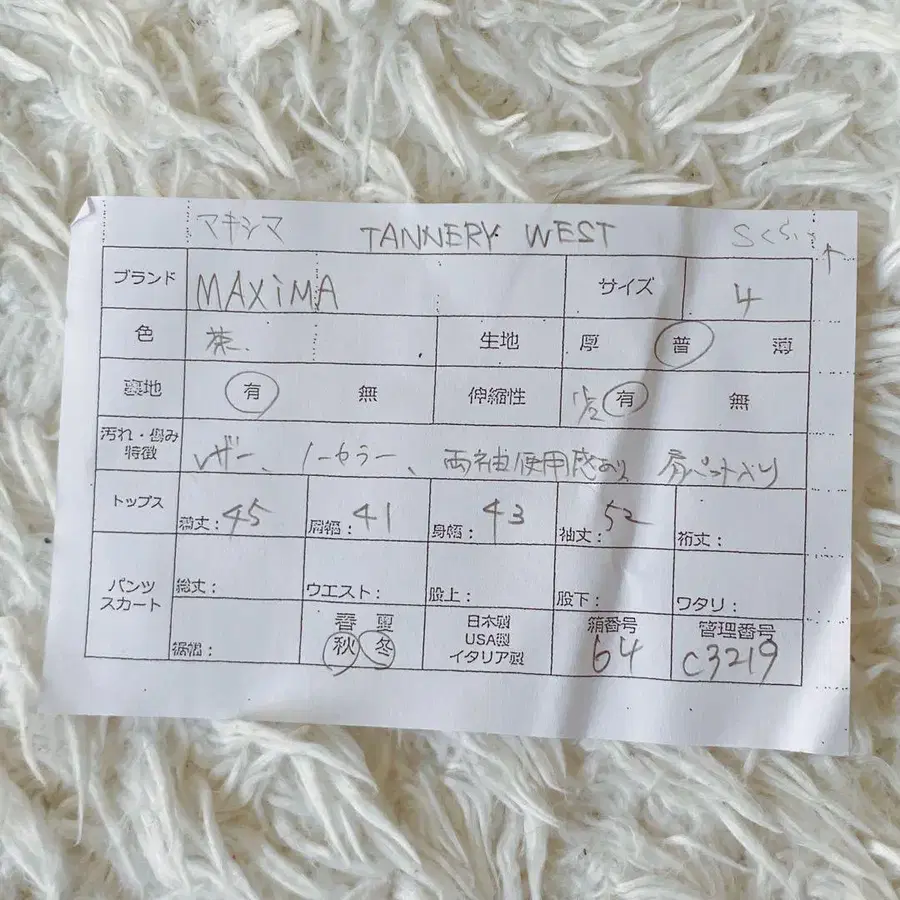 マキシマ TANNERY WEST Sくらい
ブランド MAXiMA サイズ 4
色 茶、 生地 厚 普 薄
裏地 有 無 伸縮性 有 無
汚れ・傷み
特徴
レザー、ノーカラー、両袖使用感あり、肩パット入り
トップス 着丈：45 肩幅：41 身幅：43 袖丈：52 裄丈：
パンツ
スカート
総丈： ウエスト： 股上： 股下： ワタリ：
裾幅：
春 夏
秋 冬
日本製
USA製
イタリア製
箱番号
64
管理番号
C3219